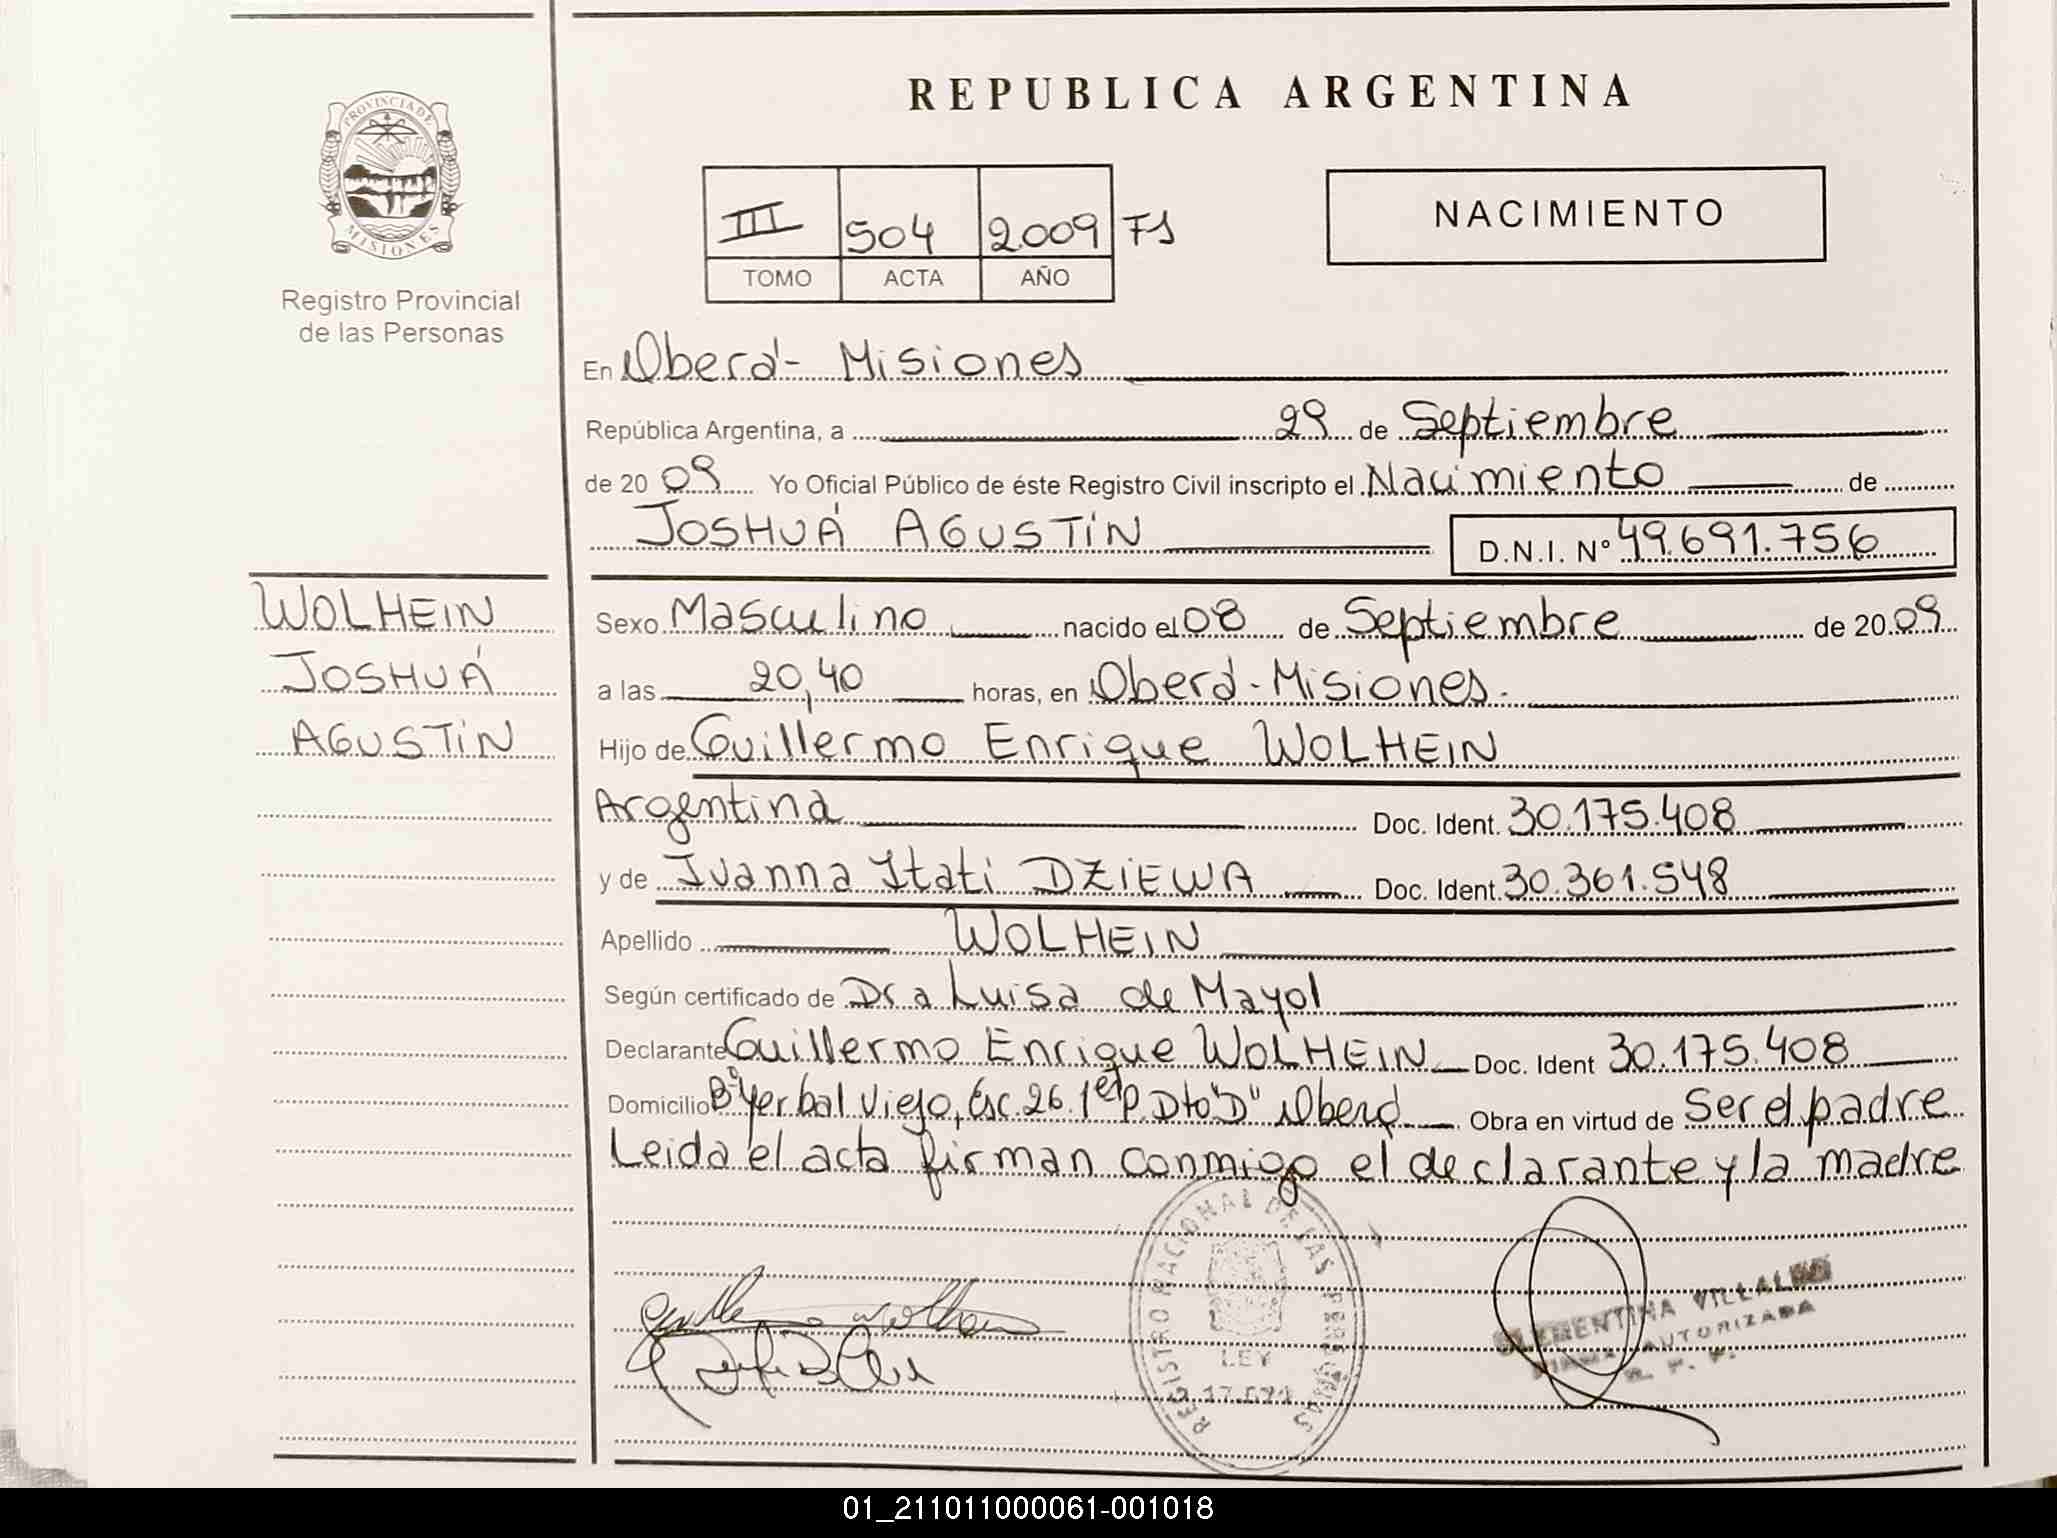 REPUBLICA ARGENTINA
PROVINCIA DE
MISIONES
Registro Provincial
de las Personas
III 504 2009 F1
TOMO ACTA AÑO
NACIMIENTO
En Oberá - Misiones
República Argentina, a 29 de Septiembre
de 20 09 Yo Oficial Público de éste Registro Civil inscripto el Nacimiento de
JOSHUÁ AGUSTÍN D.N.I. Nº 49.691.756
WOLHEIN
JOSHUÁ
AGUSTÍN
Sexo Masculino nacido el 08 de Septiembre de 20 09
a las 20,40 horas, en Oberá - Misiones.
Hijo de Guillermo Enrique WOLHEIN
Argentina Doc. Ident. 30.175.408
y de Ivanna Itati DZIEWA Doc. Ident. 30.361.548
Apellido WOLHEIN
Según certificado de Dra Luisa de Mayol
Declarante Guillermo Enrique WOLHEIN Doc. Ident 30.175.408
Domicilio Bº Yerbal Viejo, Esc. 26. 1er P. Dto "D" Oberá Obra en virtud de Ser el padre
Leida el acta firman conmigo el declarante y la madre
REGISTRO NACIONAL DE LAS PERSONAS
LEY
17.671
CLEMENTINA VILLALBA
FIRMA AUTORIZADA
R. P. P.
01_211011000061-001018